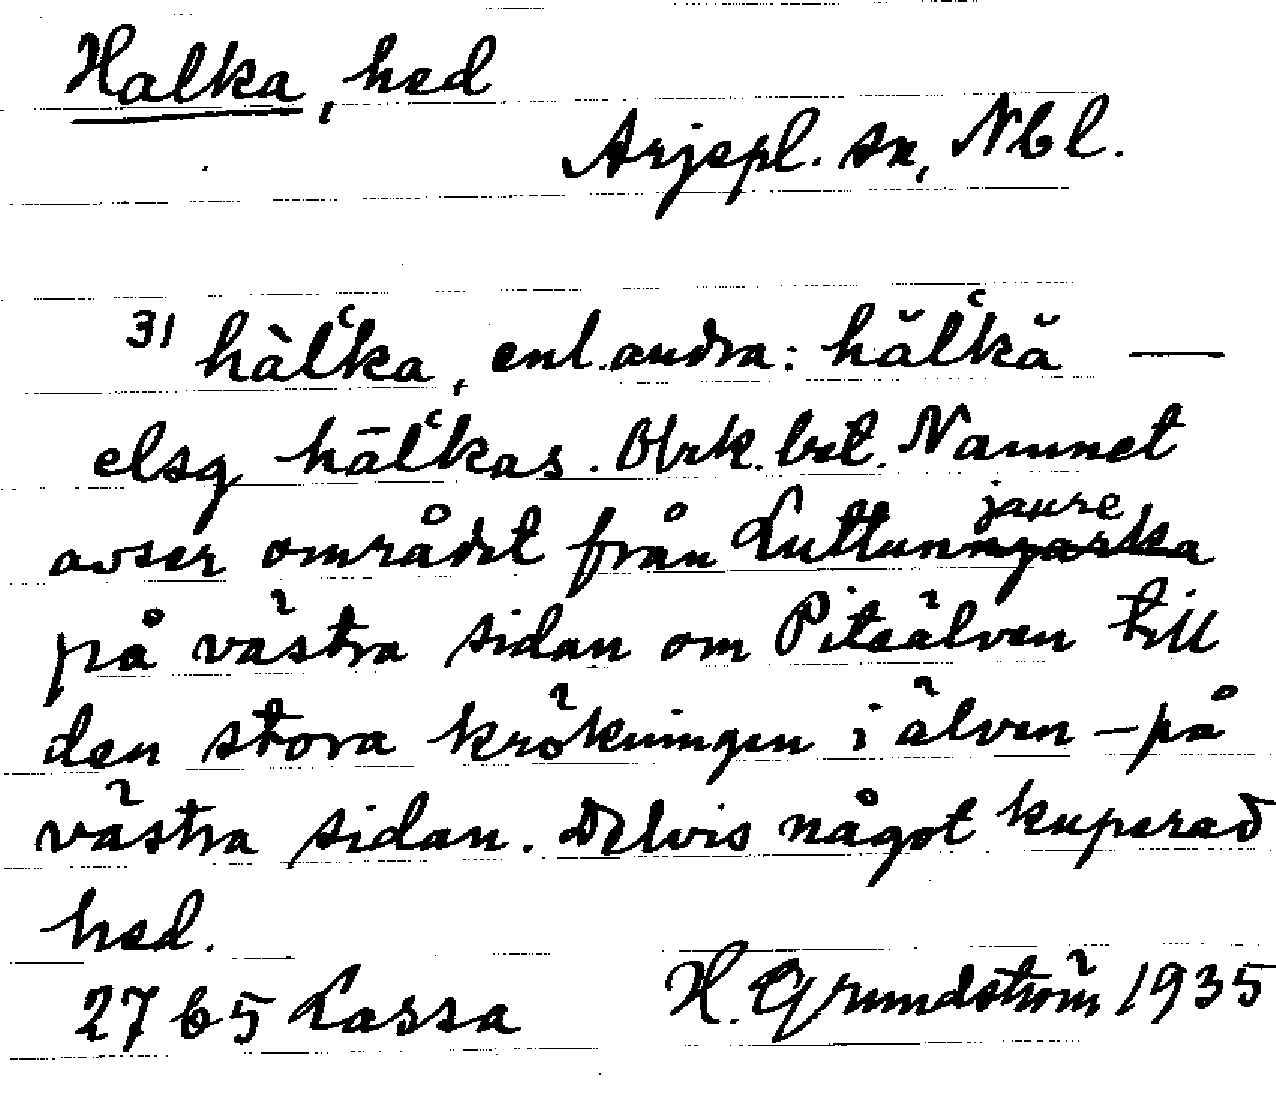 Halka, hed
Arjepl. sn, Nbl.
31 hàlʿka, enl. andra: hălʿkă —
elsg hālʿkas. Obek. bet. Namnet
avser området från Luttunjaure
på västra sidan om Piteälven till
den stora krökningen i älven – på
västra sidan. Delvis något kuperad
hed.
2765 Lassa H. Grundström 1935